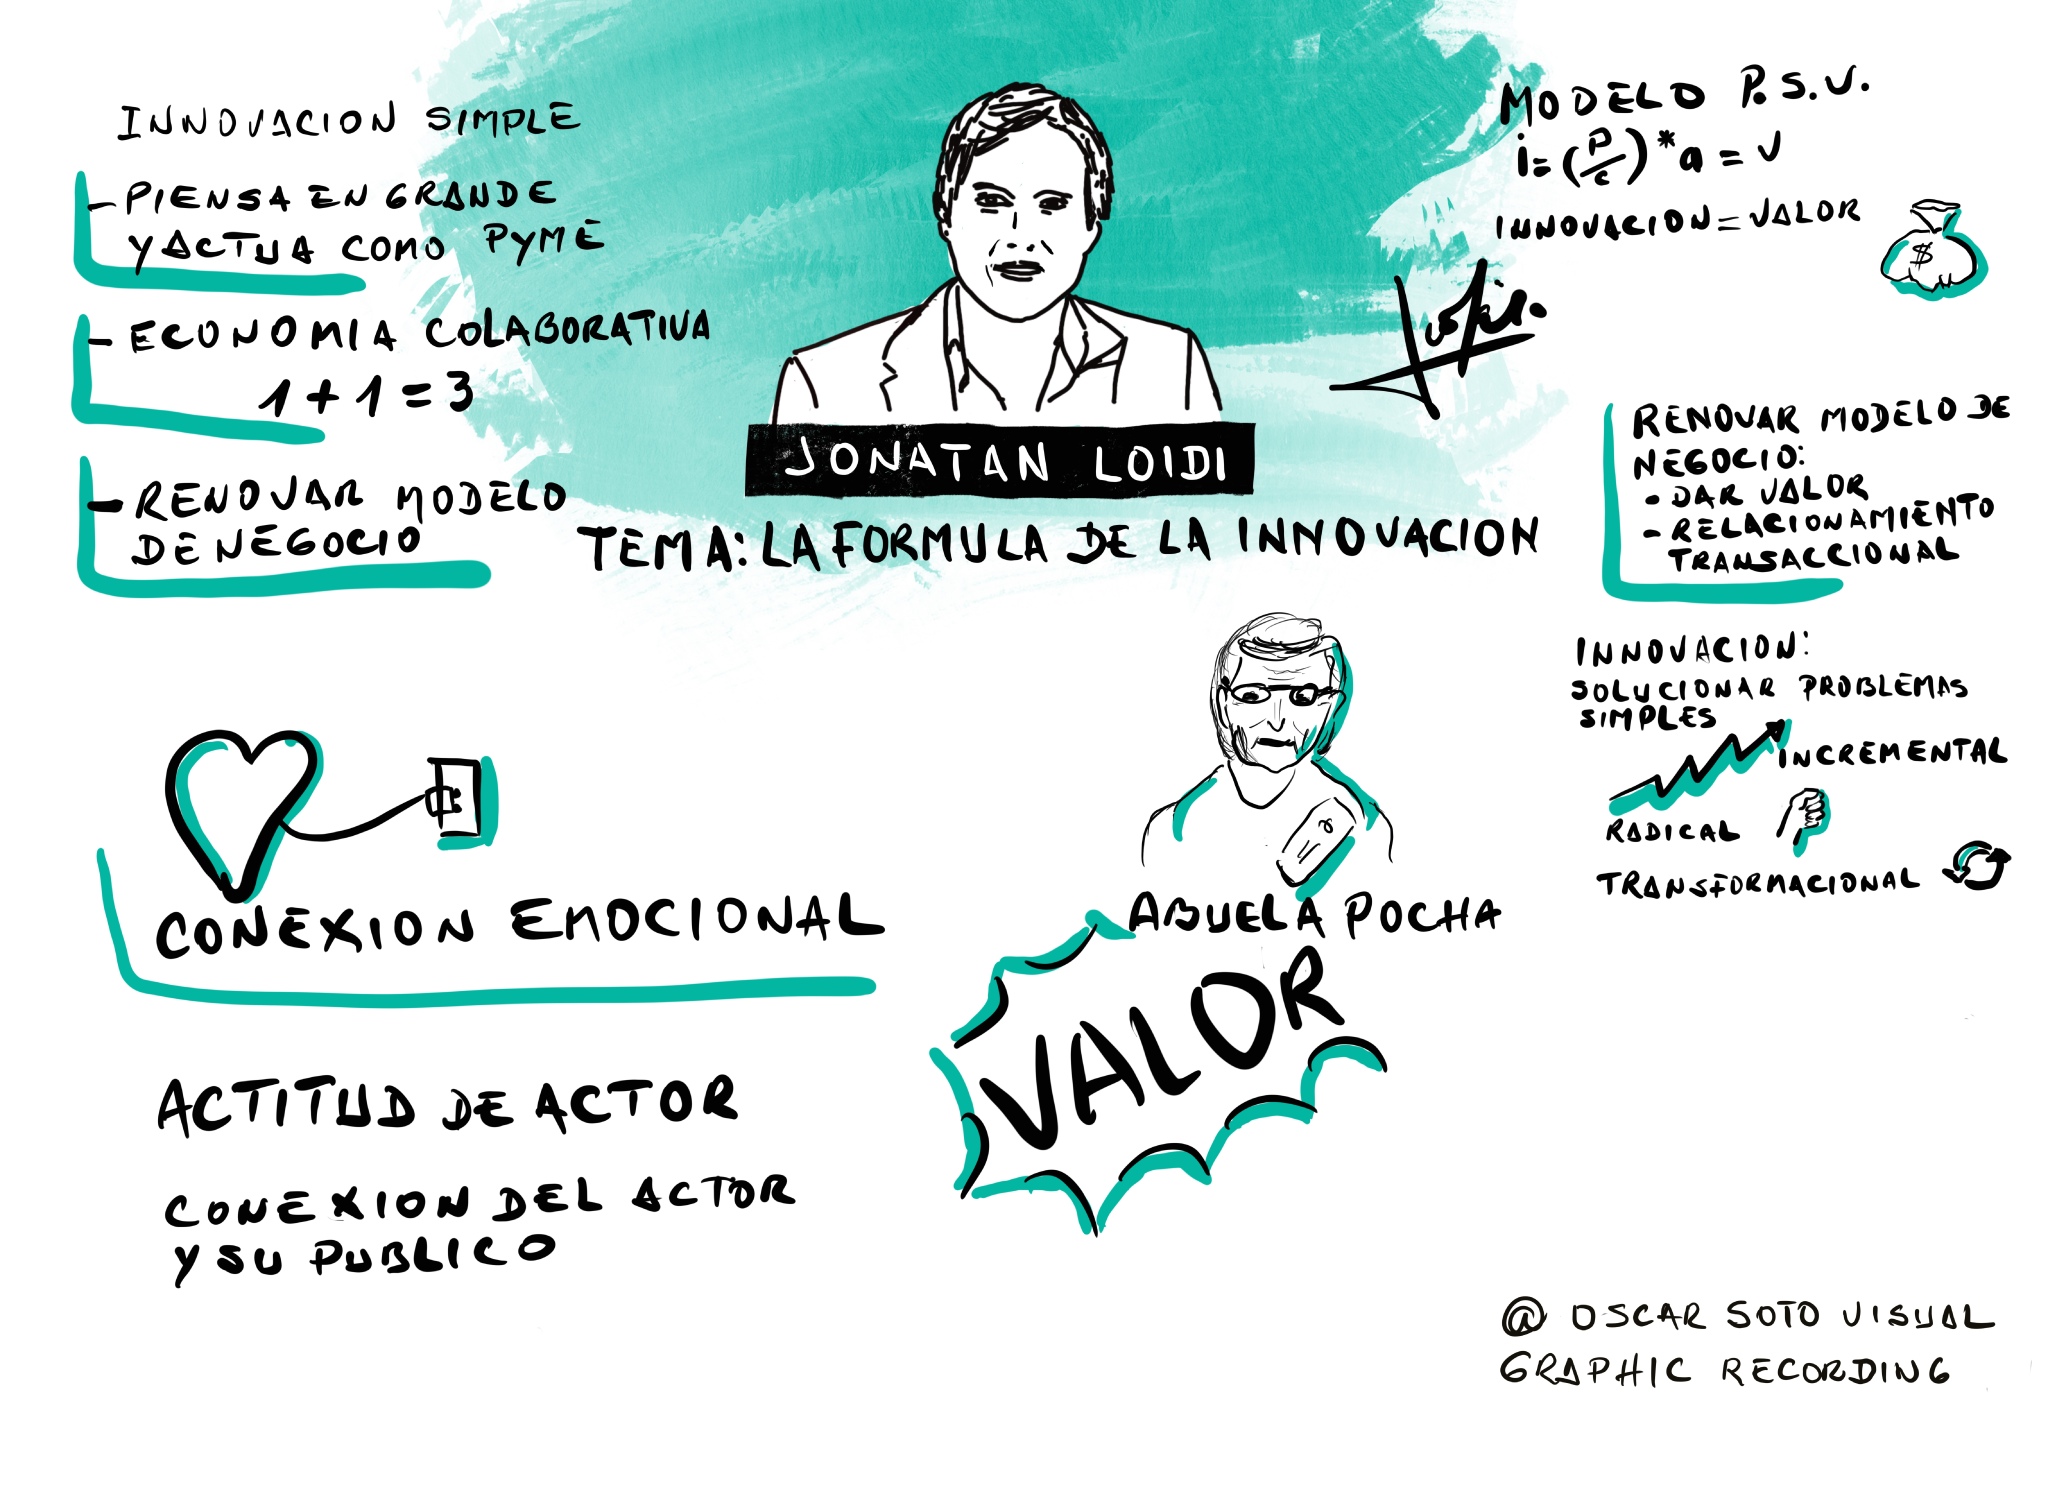 INNOVACION SIMPLE
- PIENSA EN GRANDE
Y ACTUA COMO PYME
- ECONOMIA COLABORATIVA
1 + 1 = 3
- RENOVAR MODELO
DE NEGOCIO
JONATAN LOIDI
TEMA: LA FORMULA DE LA INNOVACION
MODELO P.S.V.
i = (P/c) * a = V
INNOVACION = VALOR
$
RENOVAR MODELO DE
NEGOCIO:
- DAR VALOR
- RELACIONAMIENTO
TRANSACCIONAL
INNOVACION:
SOLUCIONAR PROBLEMAS
SIMPLES
INCREMENTAL
RADICAL
TRANSFORMACIONAL
ABUELA POCHA
VALOR
CONEXION EMOCIONAL
ACTITUD DE ACTOR
CONEXION DEL ACTOR
Y SU PUBLICO
@ OSCAR SOTO VISUAL
GRAPHIC RECORDING